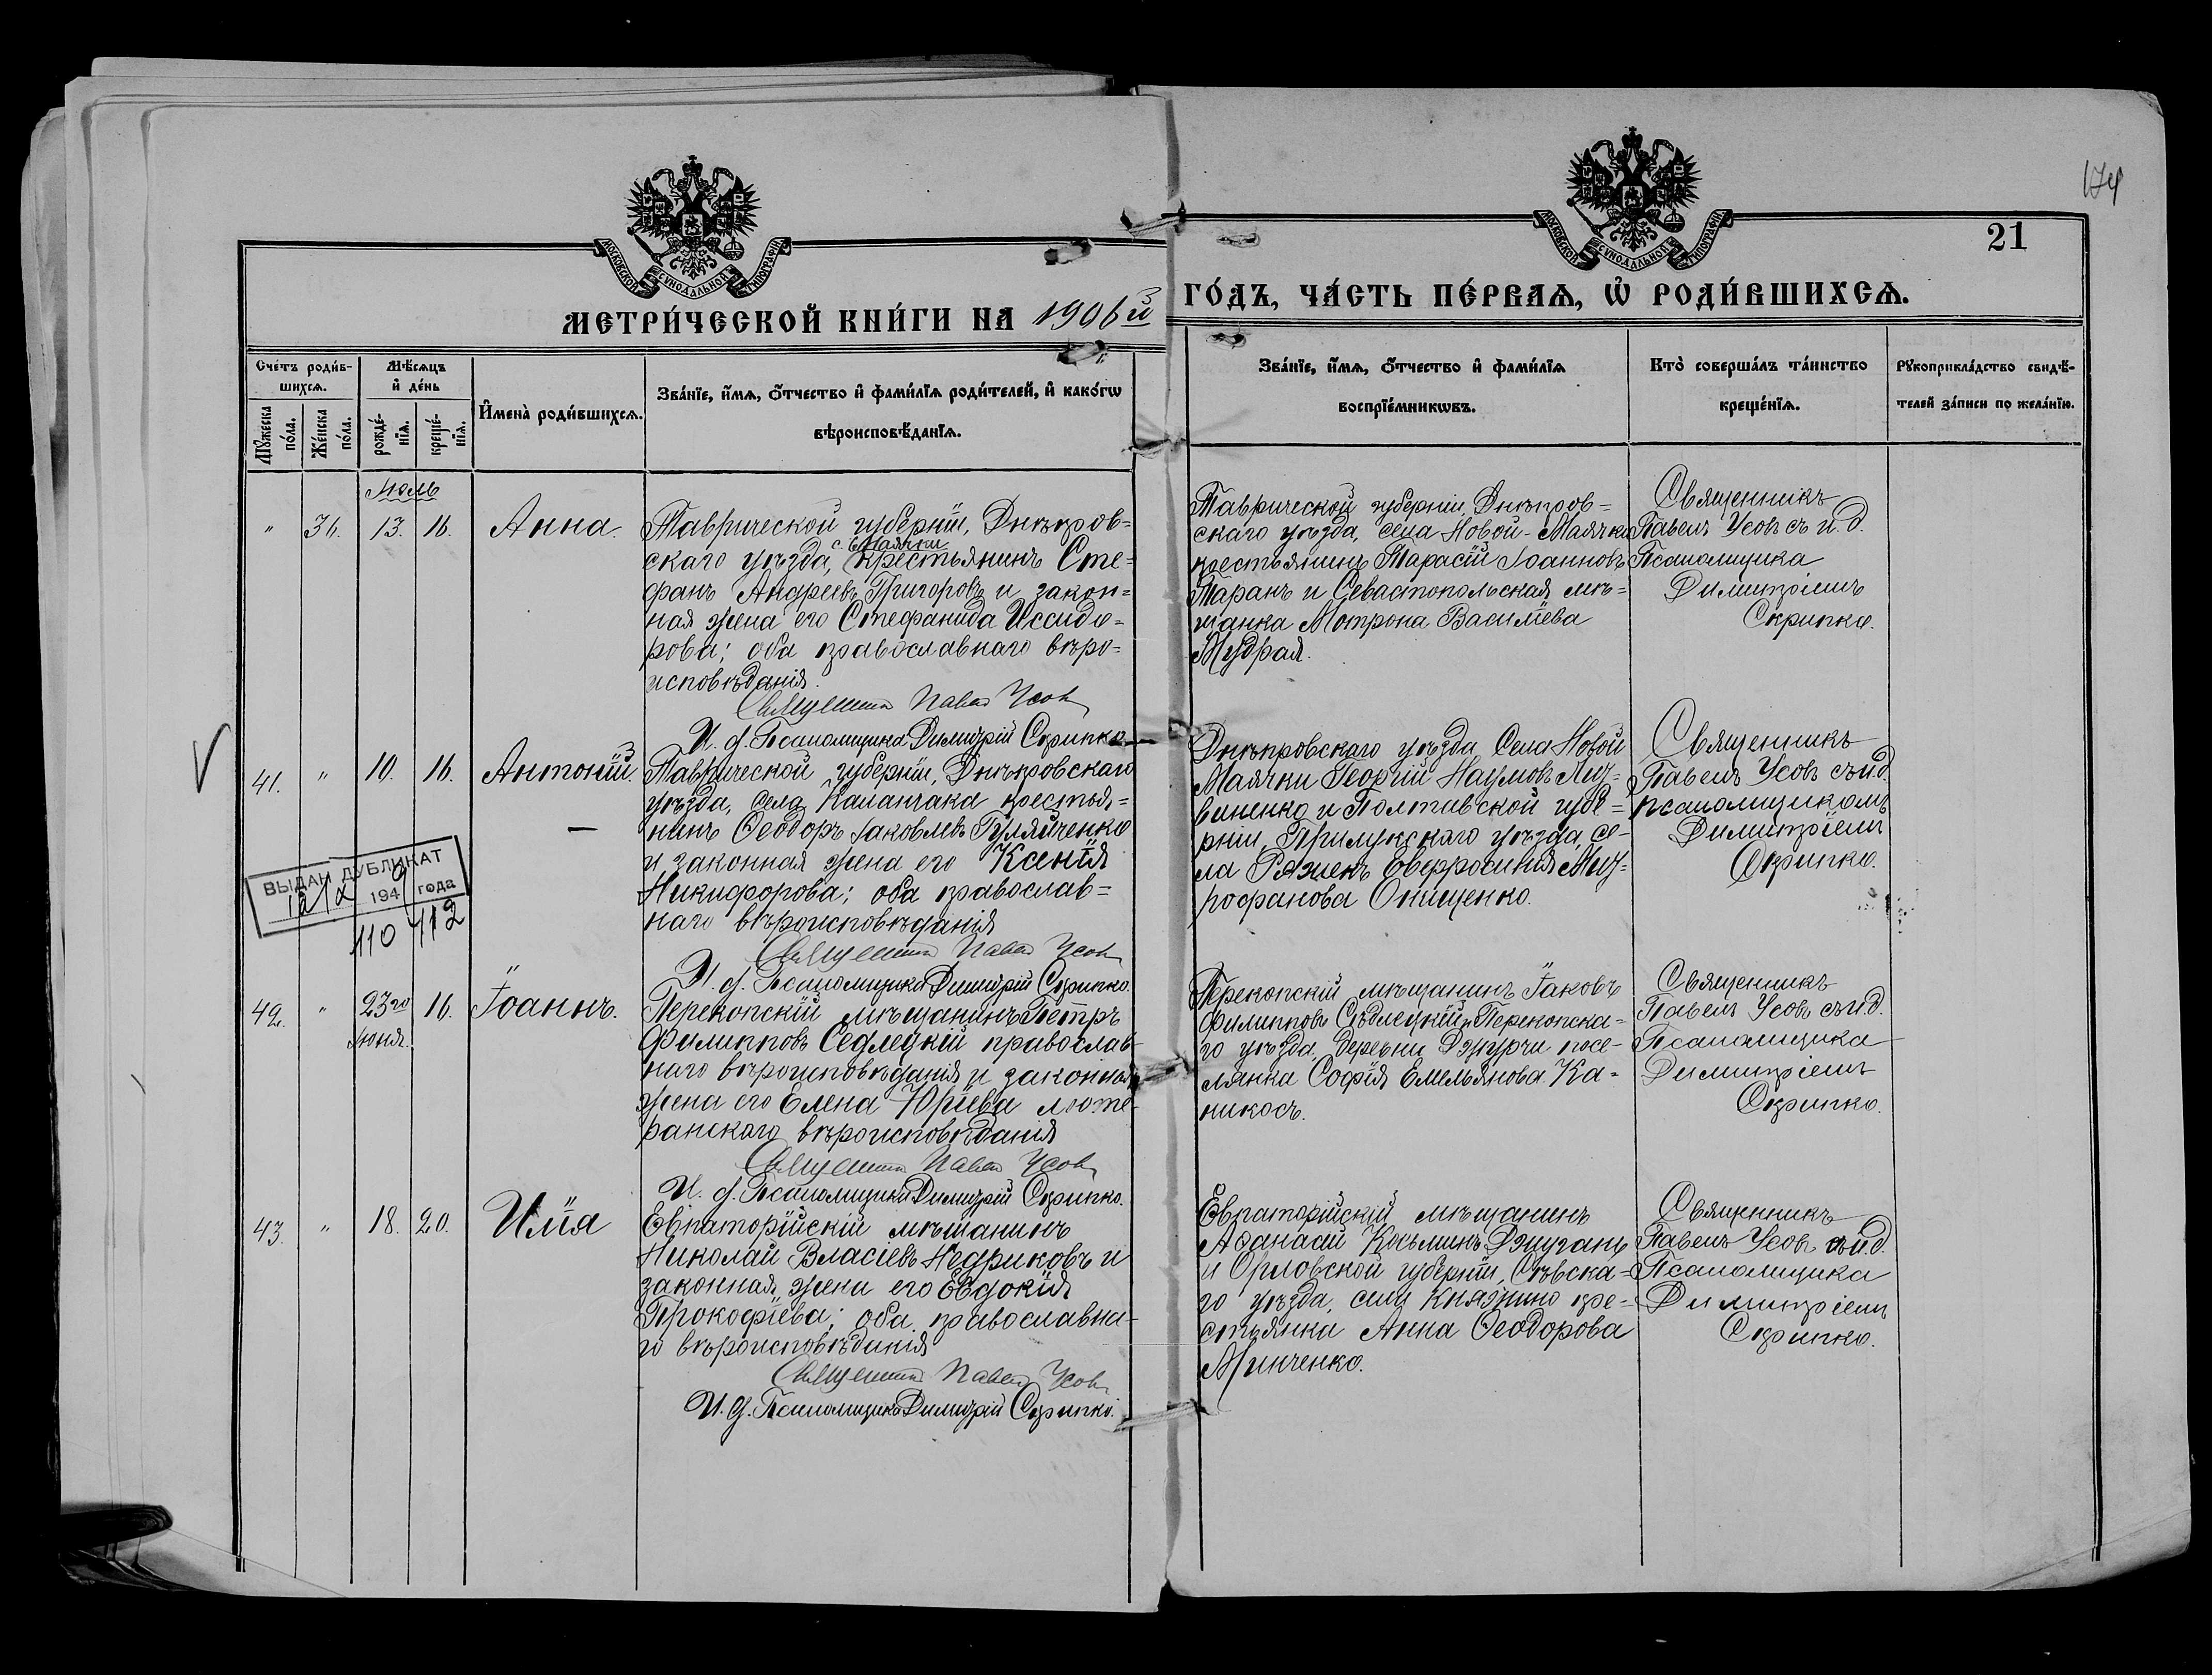 174
21
МОСКОВСКОЙ СѴНОДАЛЬНОЙ ТИПОГРАФІИ
МОСКОВСКОЙ СѴНОДАЛЬНОЙ ТИПОГРАФІИ
МЕТРИ́ЧЕСКОЙ КНИ́ГИ НА 1906й ГО́ДЪ, ЧА́СТЬ ПЕ́РВАѦ, Ѡ҆ РОДИ́ВШИХСѦ.
Сче́тъ роди́в-
шихсѧ.
Мꙋ́жеска по́ла.
Же́нска по́ла.
Мѣ́сѧцъ
и҆ де́нь
рожде́-
нїѧ.
креще́-
нїѧ.
И҆мена̀ роди́вшихсѧ.
Зва́нїе, и҆́мѧ, ѻ҆́тчество и҆ фами́лїѧ роди́телей, и҆ како́гѡ
вѣроисповѣ́данїѧ.
Зва́нїе, и҆́мѧ, ѻ҆́тчество и҆ фами́лїѧ
воспрїе́мникѡвъ.
Кто̀ соверша́лъ та́инство
креще́нїѧ.
Рꙋкоприкла́дство свидѣ́-
телей за́писи по жела́нїю.
Іюль
" 36. 13. 16. Анна.
Таврической губерніи, Днѣпров-
с. Маячки
скаго уѣзда, крестьянинъ Сте-
фанъ Андреевъ Григоровъ и закон-
ная жена его Стефанида Иссидо-
рова; оба православнаго вѣро-
исповѣданія.
Священникъ Павелъ Усовъ
И. д. Псаломщика Димитрій Скрипко
Таврической губерніи, Днѣпров-
скаго уѣзда, села Новой-Маячки
крестьянинъ Тарасій Іоанновъ
Таранъ и Севастопольская мѣ-
щанка Мотрона Васильева
Мудрая.
Священникъ
Павелъ Усовъ съ и. д.
Псаломщика
Димитріемъ
Скрипко.
41. " 10. 16. Антоній.
Таврической губерніи, Днѣпровскаго
уѣзда, села Каланчака крестья-
нинъ Ѳеодоръ Іаковлевъ Гуляйченко
и законная жена его Ксенія
Никифорова; оба православ-
наго вѣроисповѣданія
Священникъ Павелъ Усовъ
И. д. Псаломщика Димитрій Скрипко.
Днѣпровскаго уѣзда, Села Новой
Маячки Георгій Наумовъ
и Полтавской губе-
рніи, Прилукскаго уѣзда, се-
ла Евфросинія Мит-
рофанова Онищенко.
Священникъ
Павелъ Усовъ съ и.д.
псаломщикомъ
Димитріемъ
Скрипко.
ВЫДАН ДУБЛИКАТ
12/X 1949 года
110 412
42. " 23го 16. Іоаннъ.
Іюня.
Перекопскій мѣщанинъ Петръ
Филипповъ Седлецкій православ-
наго вѣроисповѣданія и законная
жена его Елена Юріева люте-
ранскаго вѣроисповѣданія
Священникъ Павелъ Усовъ
И. д. Псаломщика Димитрій Скрипко.
Перекопскій мѣщанинъ Іаковъ
Филипповъ Сѣдлецкій и Перекопска-
го уѣзда, деревни Джурчи посе-
лянка Софія Емельянова Ка-
никосъ.
Священникъ
Павелъ Усовъ съ и.д.
Псаломщика
Димитріемъ
Скрипко.
43. " 18. 20. Илія
Евпаторійскій мѣщанинъ
Николай Власіевъ Недриковъ и
законная жена его Евдокія
Прокофіева; оба православна-
го вѣроисповѣданія
Священникъ Павелъ Усовъ
И. д. Псаломщика Димитрій Скрипко.
Евпаторійскій мѣщанинъ
Аѳанасій Косьминъ Джуганъ
и Орловской губерніи, Сѣвска-
го уѣзда, села Княжино кре-
стьянка Анна Ѳеодорова
Минченко.
Священникъ
Павелъ Усовъ съ и.д.
Псаломщика
Димитріемъ
Скрипко.